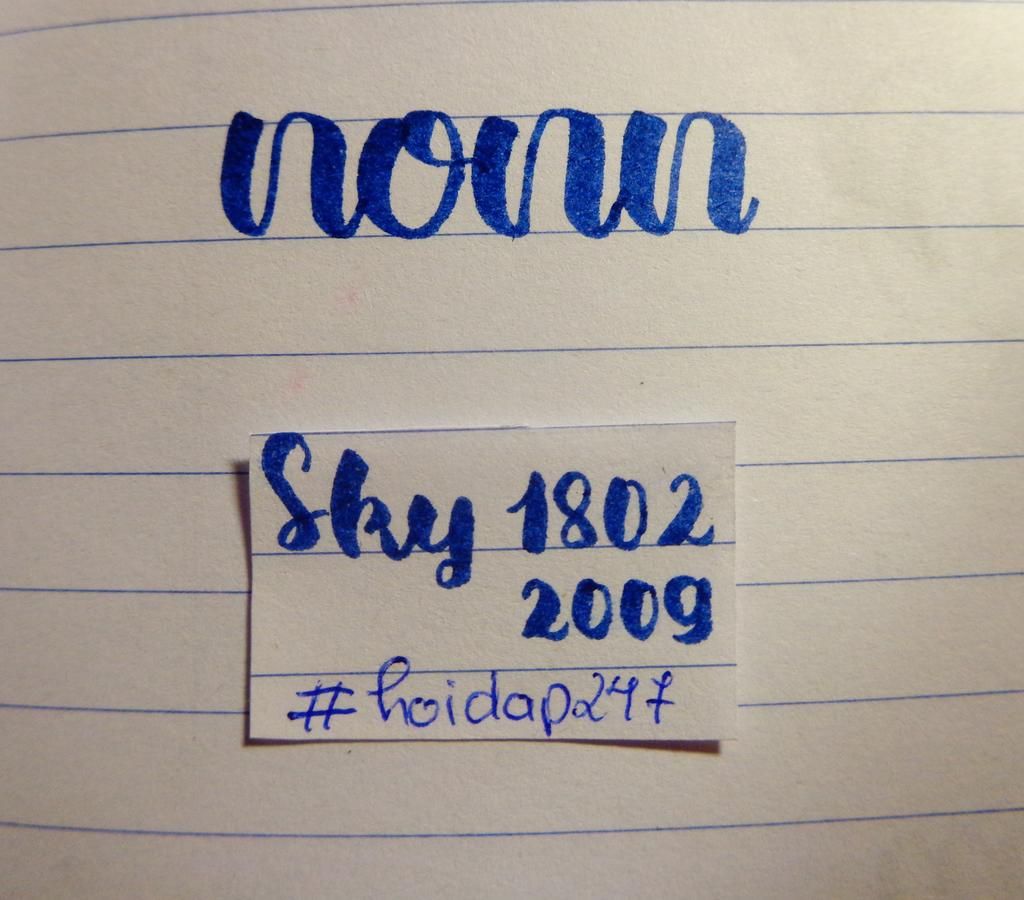 nonn
Sky 1802
2009
#hoidap247